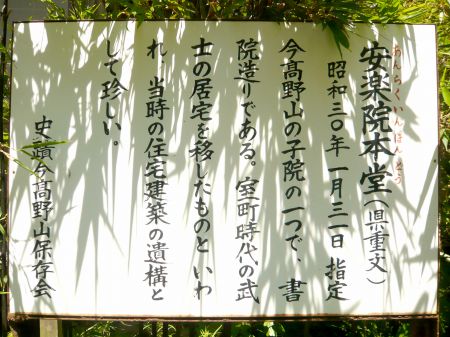 あんらくいんほんどう
安楽院本堂（県重文）
昭和三〇年一月三一日指定
今髙野山の子院の一つで、書
院造りである。室町時代の武
士の居宅を移したものといわ
れ、当時の住宅建築の遺構と
して珍しい。
史蹟今髙野山保存会